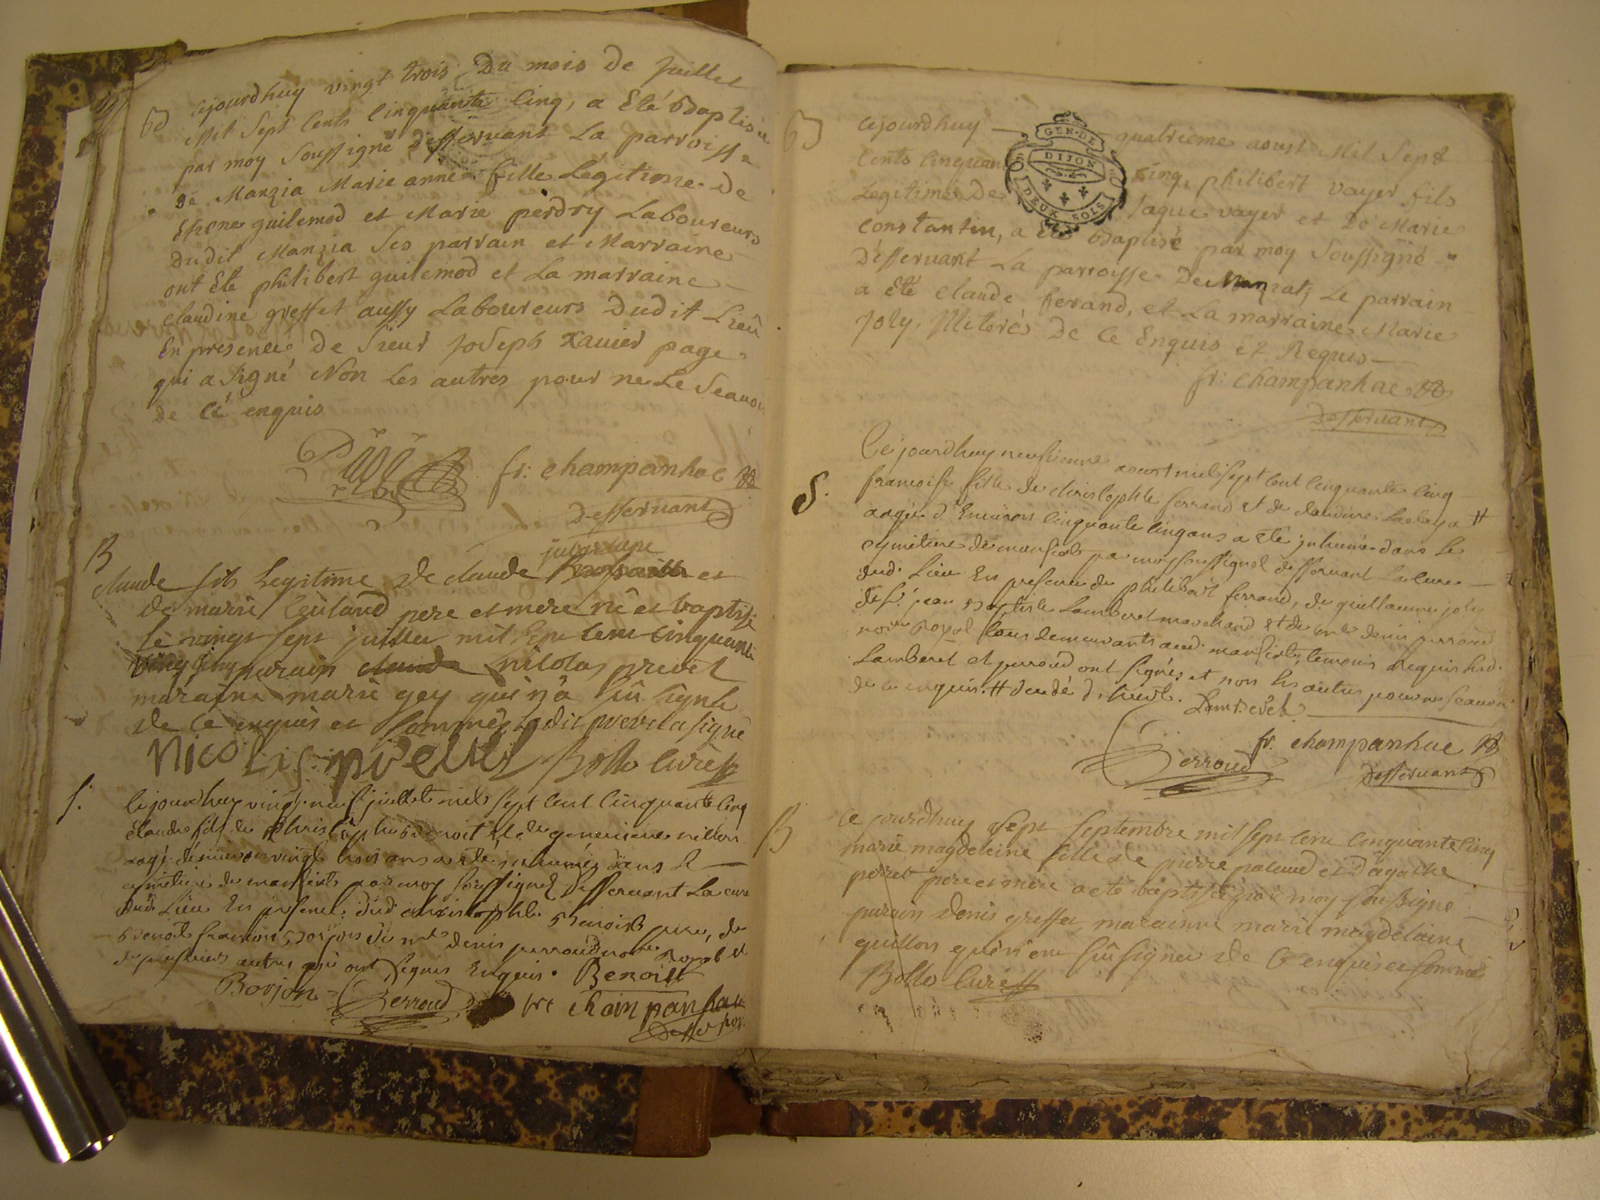 B
cejourdhuy vingt trois Du mois de juillet
Mil Sept Cents Cinquante Cinq, a Eté Baptisée
par moy Soussigné Desservant La parroisse
de Manzia Marie anne fille Légitime de
guilemod et Marie perdry Laboureurs
dudit Manzia Ses parrain et Marraine
ont Eté philibert guilemod et La marraine
claudine gresset aussy Laboureurs Dudit Lieu
En presence de Sieur joseph Xavier page
qui a signé Non Les autres pour ne Le Scavoir
de Cé enquis
fr: champanhac
Desservant
B
claude fils Legitime de claude et
de marie pere et mere né et baptisé
le vingt sept juillet mil sept cent cinquante
cinq parain claude nicolas prevet
maraine marie gey qui n'a sû signé
de ce enquis et sommée ledit prevet a signé
Bollo Curé
S.
Cejourdhuy vingt neuf juillet mil sept cent Cinquante Cinq
Claude fils de Christophe Benoit et de genevieve
agé denviron vingt trois ans a eté inhumé dans le
cymetiere de manziat par moy soussigné Desservant La cure
dud. Lieu En presence dud christophle Benoist pere, de
Benoit francois Borjon de me denis perroud nore Royal et
de plusieurs autres qui ont signés Enquis. Benoist
Borjon Perroud fre champanhac
B
cejourdhuy quatrieme aoust Mil Sept
GEN. DE
DIJON
DEUX SOLS
cents Cinquante Cinq philibert vayer fils
Legitime De jaque vayer et De Marie
constantin, a eté Baptisé par moy Soussigné
Desservant La parroisse De Manziat, Le parrain
a Eté claude ferand, et La marraine Marie
joly. Illiterés De Ce Enquis et Requis
fr: champanhac
Desservant
S.
Cejourdhuy neufieme aoust mil sept cent cinquante cinq
francoise fille de christophle ferrand et de claudine #
aagée d'Environ Cinquante cinq ans a eté inhumée dans Le
cymetiere de manziat par moy soussigné desservant La cure
dud. Lieu En presence de philibert ferrand, de guillaume joly
de Sr. jean Baptiste Lamberet marchand et de me denis perroud
noire Royal tous demeurants aud. manziat, temoins Requis Led.
Lamberet et perroud ont signés et non les autres pour ne scavoir
de ce enquis. #
Lamberet
fr. champanhac
Perroud Desservant
B
Ce jourdhuy sept septembre mil sept cent cinquante cinq
marie magdeleine fille de pierre et d'agathe
perret pere et mere a eté baptisée par moy soussigné
parain denis gresset maraine marie magdelaine
guillon qui n'ont sû signer de Ce enquis et sommés
Bollo Curé